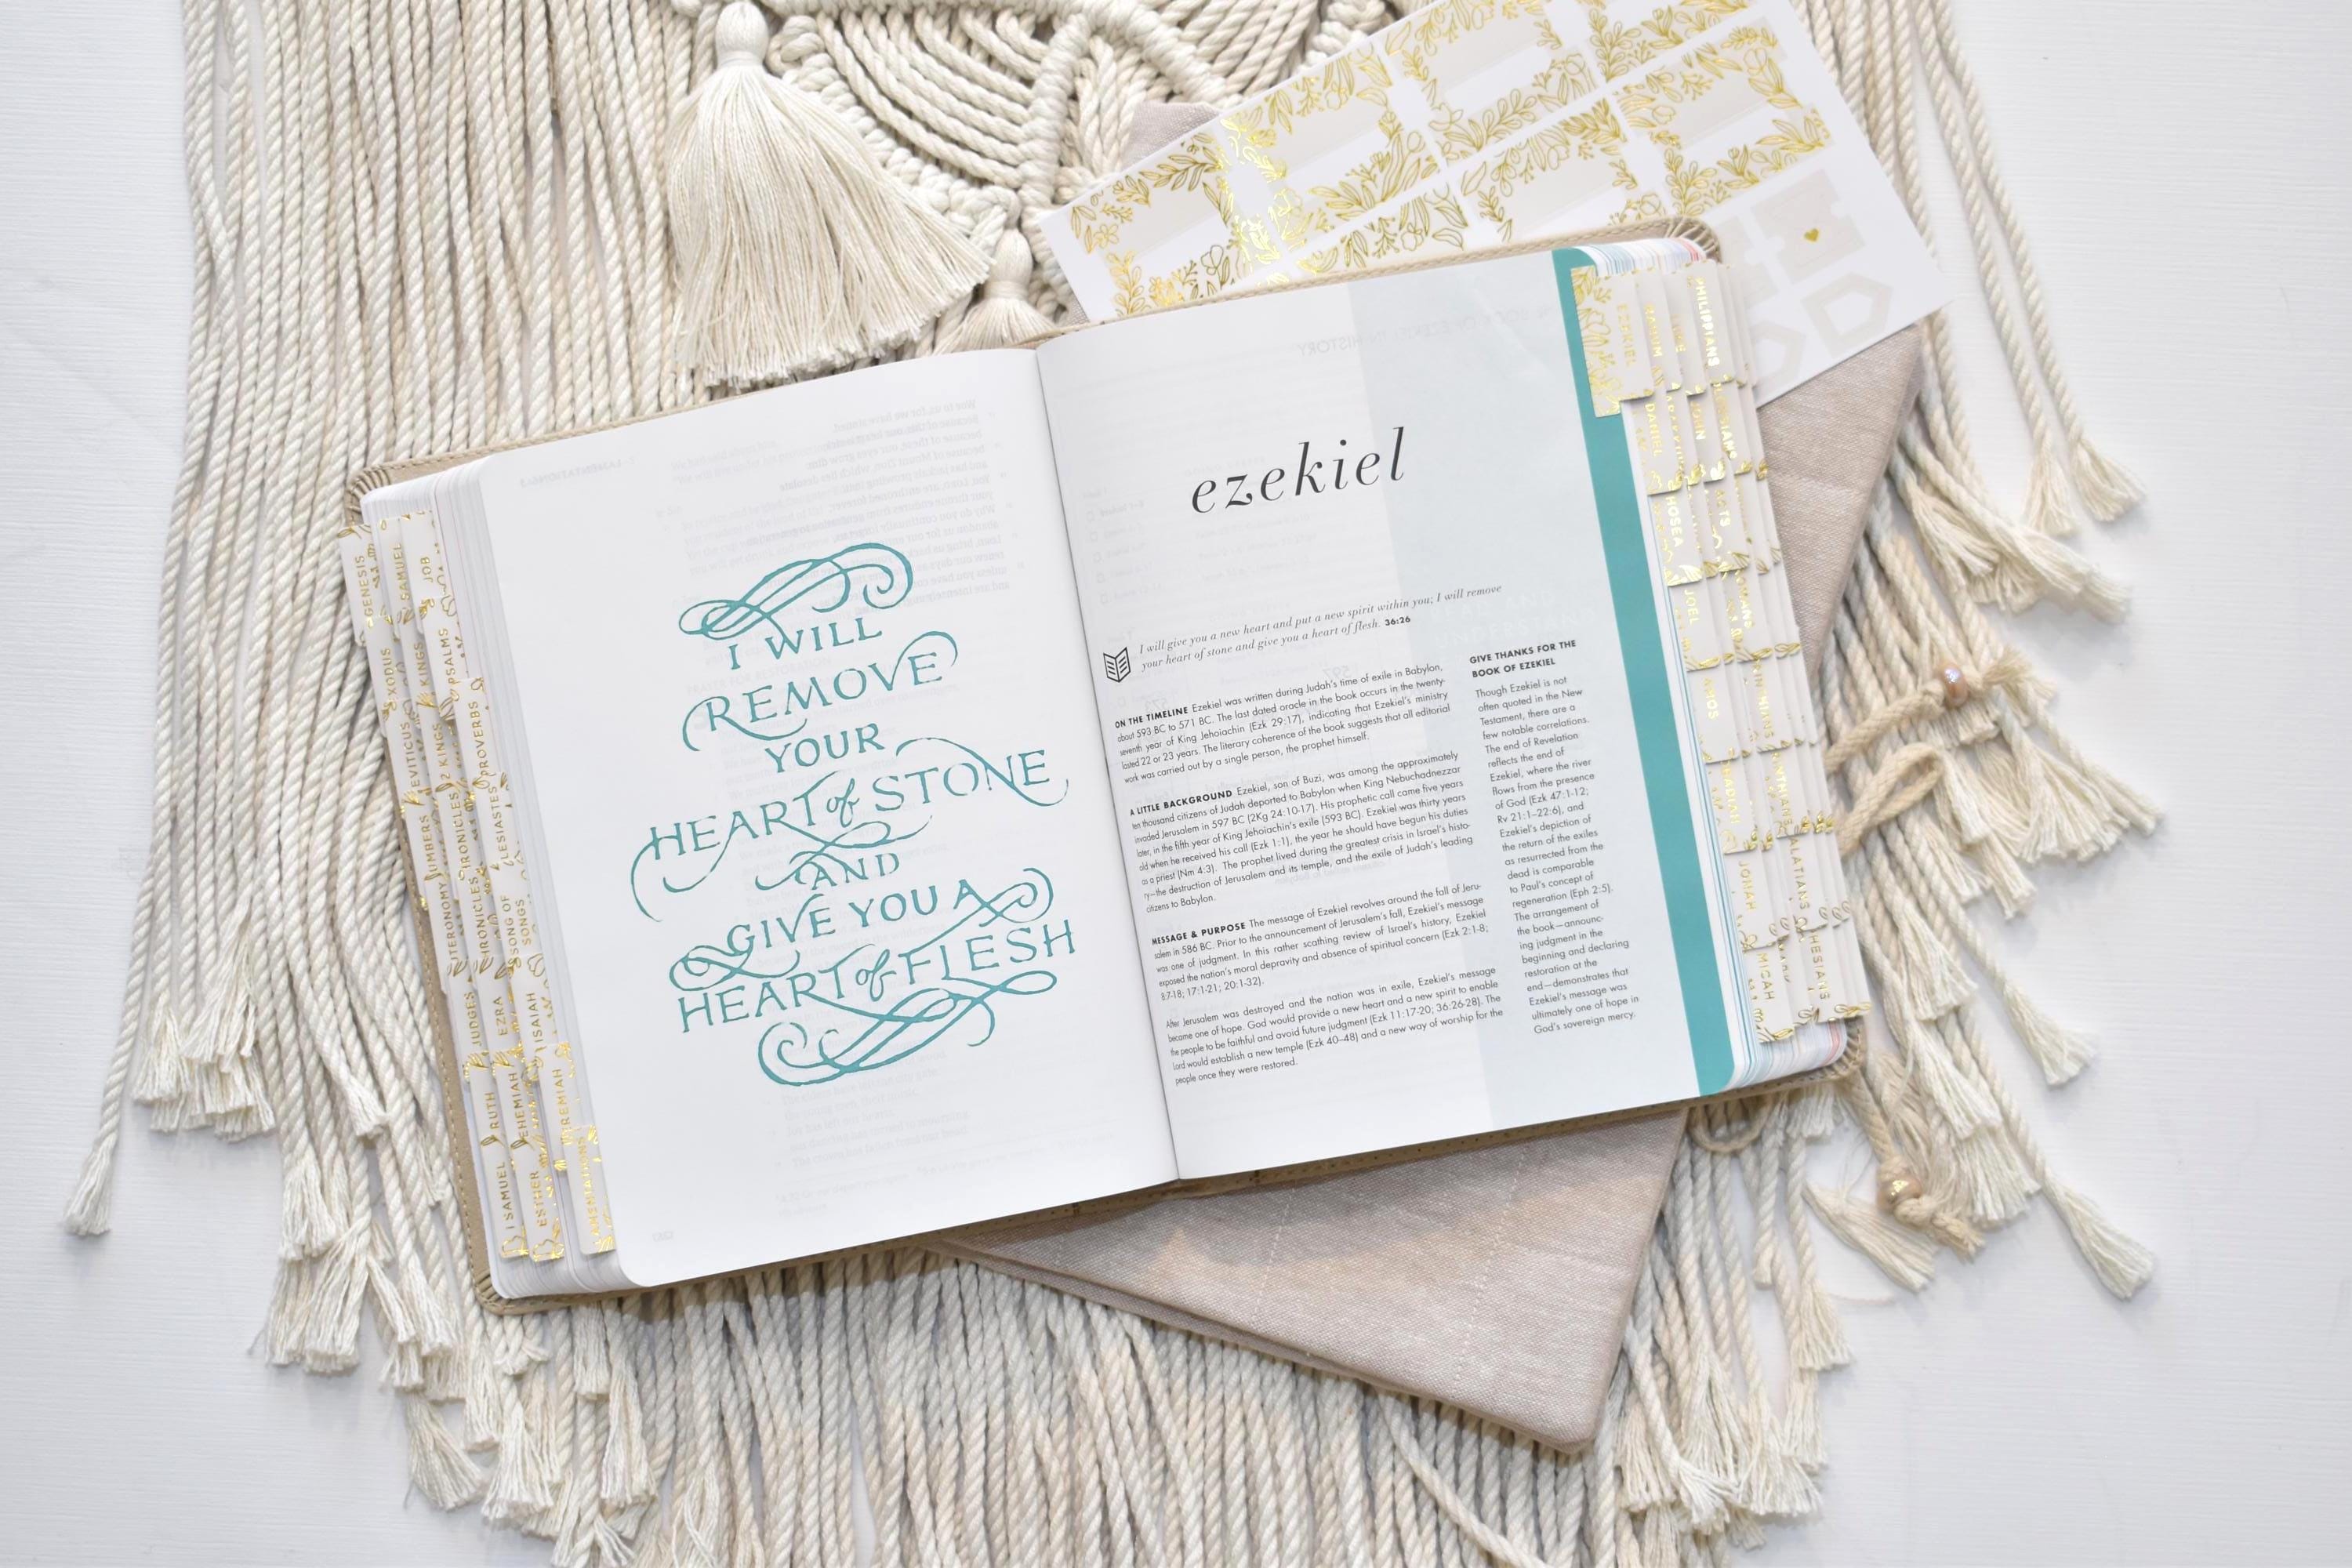 I WILL
REMOVE
YOUR
HEART of STONE
AND
GIVE YOU A
HEART of FLESH
ezekiel
I will give you a new heart and put a new spirit within you; I will remove
your heart of stone and give you a heart of flesh. 36:26
ON THE TIMELINE Ezekiel was written during Judah's time of exile in Babylon,
about 593 BC to 571 BC. The last dated oracle in the book occurs in the twenty-
seventh year of King Jehoiachin (Ezk 29:17), indicating that Ezekiel's ministry
lasted 22 or 23 years. The literary coherence of the book suggests that all editorial
work was carried out by a single person, the prophet himself.
A LITTLE BACKGROUND Ezekiel, son of Buzi, was among the approximately
ten thousand citizens of Judah deported to Babylon when King Nebuchadnezzar
invaded Jerusalem in 597 BC (2Kg 24:10-17). His prophetic call came five years
later, in the fifth year of King Jehoiachin's exile (593 BC). Ezekiel was thirty years
old when he received his call (Ezk 1:1), the year he should have begun his duties
as a priest (Nm 4:3). The prophet lived during the greatest crisis in Israel's histo-
ry—the destruction of Jerusalem and its temple, and the exile of Judah's leading
citizens to Babylon.
MESSAGE & PURPOSE The message of Ezekiel revolves around the fall of Jeru-
salem in 586 BC. Prior to the announcement of Jerusalem's fall, Ezekiel's message
was one of judgment. In this rather scathing review of Israel's history, Ezekiel
exposed the nation's moral depravity and absence of spiritual concern (Ezk 2:1-8;
8:7-18; 17:1-21; 20:1-32).
After Jerusalem was destroyed and the nation was in exile, Ezekiel's message
became one of hope. God would provide a new heart and a new spirit to enable
the people to be faithful and avoid future judgment (Ezk 11:17-20; 36:26-28). The
Lord would establish a new temple (Ezk 40–48) and a new way of worship for the
people once they were restored.
GIVE THANKS FOR THE
BOOK OF EZEKIEL
Though Ezekiel is not
often quoted in the New
Testament, there are a
few notable correlations.
The end of Revelation
reflects the end of
Ezekiel, where the river
flows from the presence
of God (Ezk 47:1-12;
Rv 21:1–22:6), and
Ezekiel's depiction of
the return of the exiles
as resurrected from the
dead is comparable
to Paul's concept of
regeneration (Eph 2:5).
The arrangement of
the book—announc-
ing judgment in the
beginning and declaring
restoration at the
end—demonstrates that
Ezekiel's message was
ultimately one of hope in
God's sovereign mercy.
GENESIS
EXODUS
LEVITICUS
JUDGES
RUTH
I SAMUEL
KINGS
2 KINGS
EZRA
ESTHER
JOB
PSALMS
PROVERBS
SONG OF
SONGS
ISAIAH
EZEKIEL
DANIEL
HOSEA
JOEL
AMOS
JONAH
MICAH
NAHUM
JOHN
ACTS
PHILIPPIANS